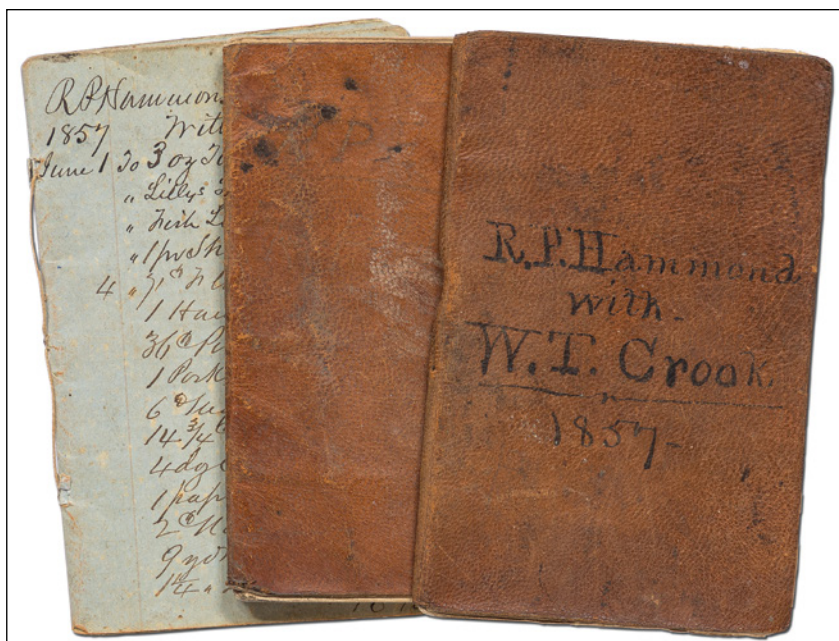 R P Hammon
1857 Wit
June 1 To 3 oz
" Lilly's
" Fish
" 1 pr Sh
4 " 71
1 Ham
36
1 Pork
6
14 3/4
4 dg
1 pap
2
9 yds
14 "
R. P. Hammond
with
W. T. Crook.
1857-